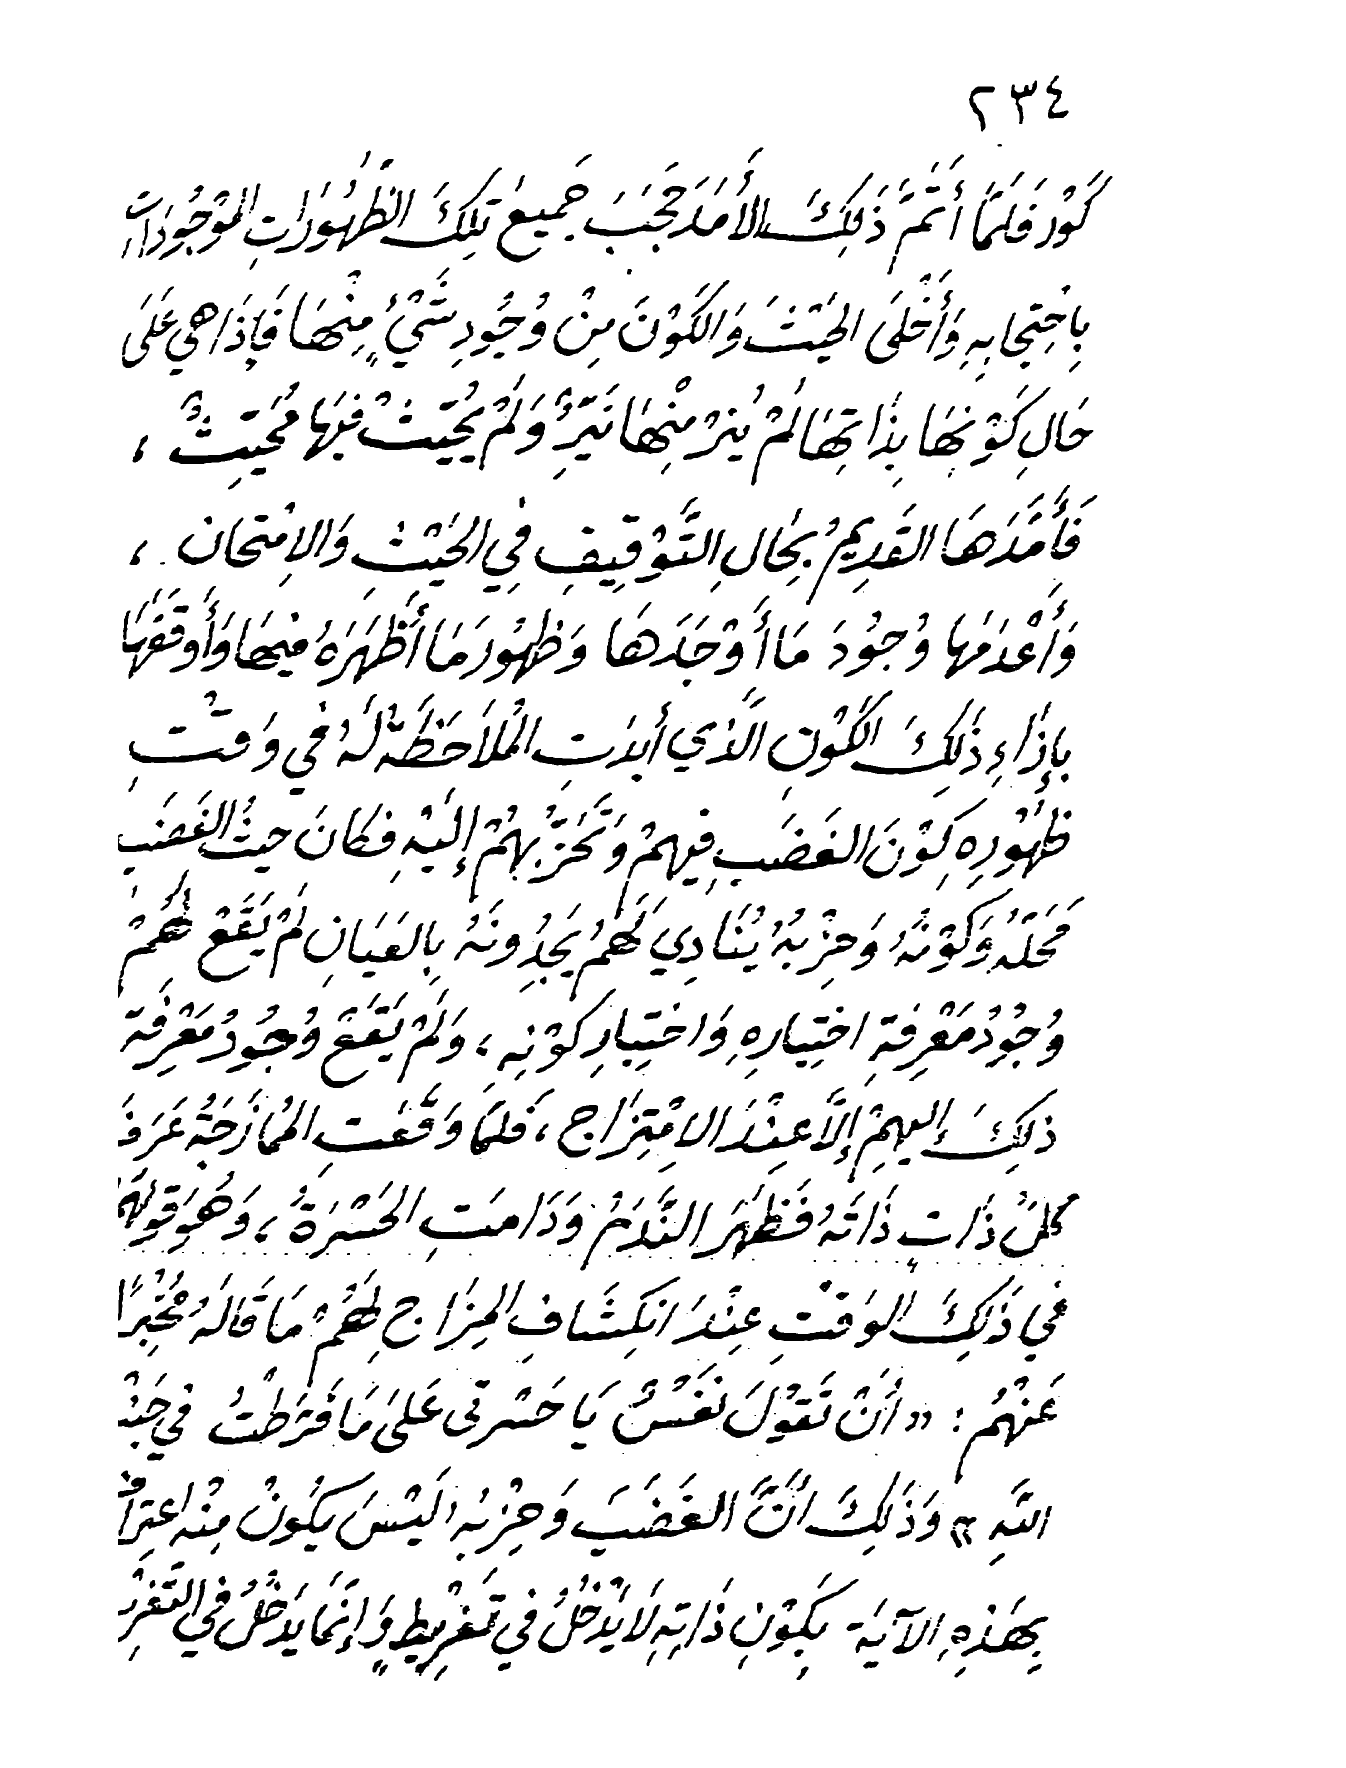 ٢٣٤
كَوْرَ فَلَمَّا أَتَمَّ ذَلِكَ الأَمَدَ حَجَبَ جَمِيعَ تِلْكَ الظُّهُورَاتِ المَوْجُودَاتِ
بِاحْتِجَابِهِ وَأَخْلَى الحَيْثَ وَالكَوْنَ مِنْ وُجُودِ شَيْءٍ مِنْهَا فَإِذَا هِي عَلَى
حَالِ كَوْنِهَا بِذَاتِهَا لَمْ يُنِرْ مِنْهَا نَيِّرٌ وَلَمْ يُحَيِّثْ فِيهَا مُحَيِّثٌ ،
فَأَمَدَّهَا القَدِيمُ بِحَالِ التَّوْقِيفِ فِي الحَيْثِ وَالامْتِحَانِ ،
وَأَعْدَمَهَا وُجُودَ مَا أَوْجَدَهَا وَظُهُورَ مَا أَظْهَرَهُ فِيهَا وَأَوْقَفَهَا
بِإِذَاءِ ذَلِكَ الكَوْنِ الَّذِي أَبْدَتِ المُلَاحَظَةُ لَهُ فِي وَقْتِ
ظُهُوْرِهِ كَوْنَ الغَضَبِ فِيهِمْ وَتَحَزُّبِهِمْ إِلَيْهِ فَكَانَ حَيْثُ الغَضَبِ
مَحَلَّهُ وَكَوْنَهُ وَحِزْبُهُ يُنَادِي لَهُمْ يَجِدُونَهُ بِالعَيَانِ لَمْ يَقَعْ لَهُمْ
وُجُودُ مَعْرِفَةِ اخْتِيَارِهِ وَاخْتِيَارِ كَوْنِهِ ، وَلَمْ يَقَعْ وُجُودُ مَعْرِفَة
ذَلِكَ إِليهِمْ إِلَّا عِنْدَ الامْتِزَاجِ ، فَلَمَّا وَقَعَتِ المُمَازَجَةُ عَرَفَ
كُلُّ ذَاتٍ ذَاتَهُ فَظَهَرَ النَّدَمُ وَدَامَتِ الحَسْرَةُ ، وَهُوَ قَوْلُهُ
فِي ذَلِكَ الوَقْتِ عِنْدَ انكِشَافِ المِزَاجِ لَهُمْ مَا قَالَهُ مُخْبِرًا
عَنْهُم : « أَنْ تَقُوْلَ نَفْسٌ يَا حَسْرتى عَلَى مَا فَرَّطْتُ فِي جَنْبِ
اللَّهِ » وَذَلِكَ أَنَّ الغَضَبَ وَحِزْبَهُ لَيْسَ يَكُونُ مِنْهُ اعْتِرَافٌ
بِهَذِهِ الآيَة بِكَوْنِ ذَاتِهِ لَا يَدْخُلُ فِي تَفْرِيطٍ وَإِنَّمَا يَدْخُلُ فِي